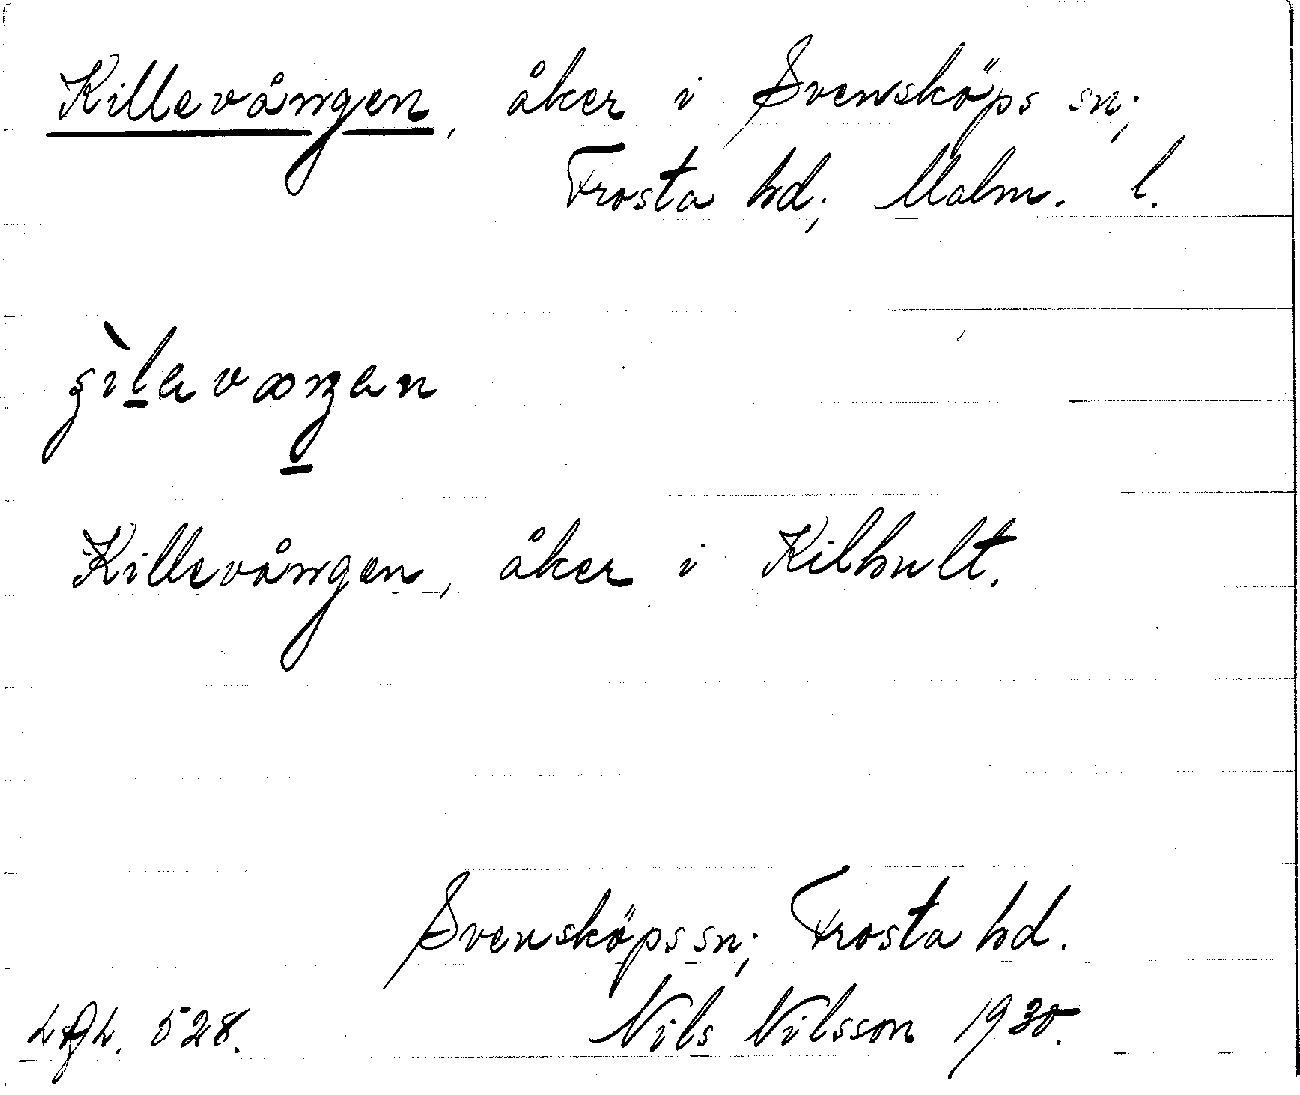 Killevången, åker i Svensköps sn;
Frosta hd; Malm. l.
Killevången, åker i Kilhult.
Svensköps sn; Frosta hd.
Nils Nilsson 1930.
528.